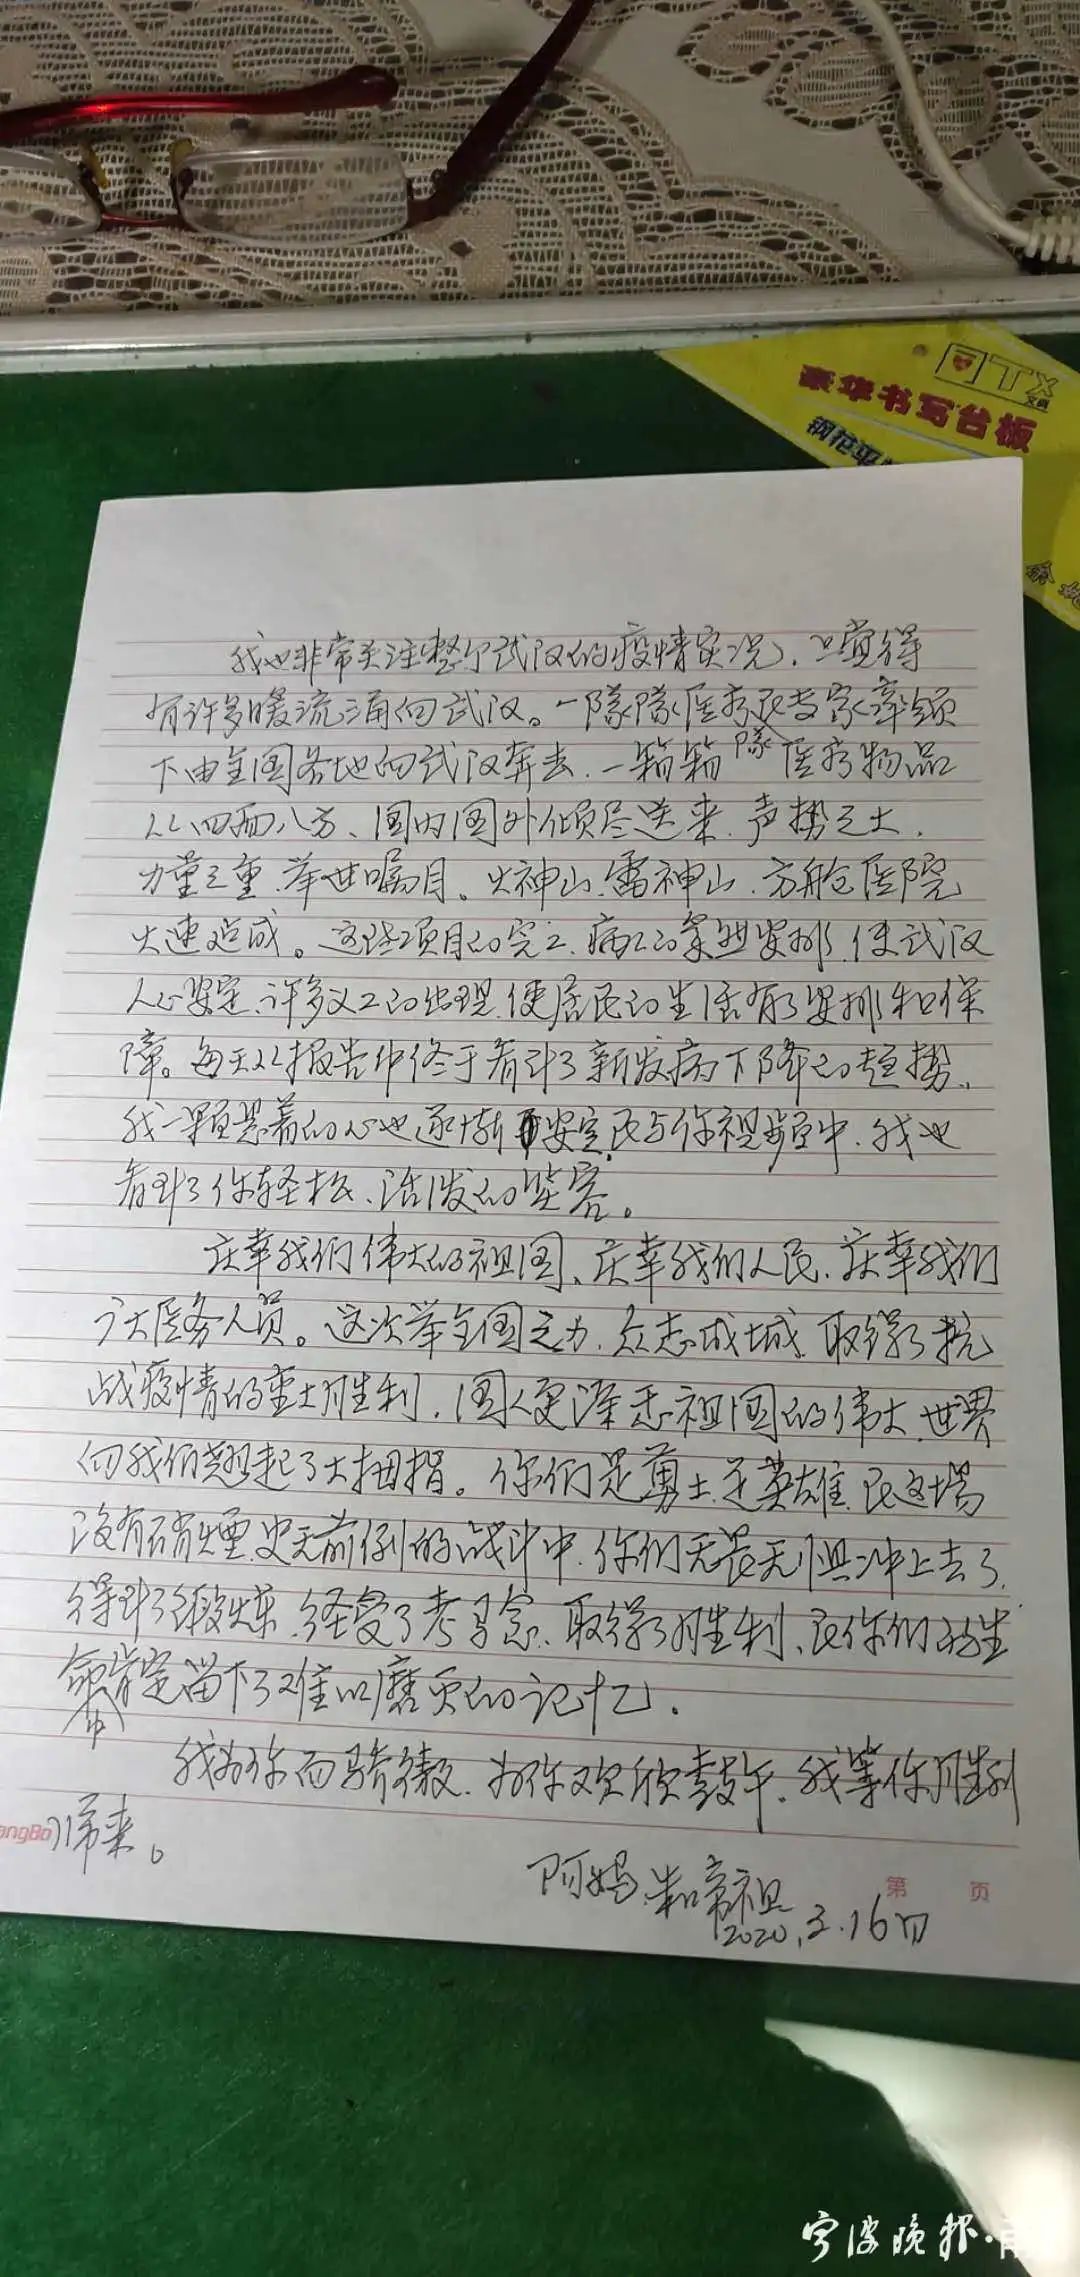 豪华书写台板
我也非常关注整个武汉的疫情实况,只觉得
有许多暖流涌向武汉。一队队医疗队在专家率领
下由全国各地向武汉奔去,一箱箱医疗物品
从四面八方、国内国外倾尽送来,声势之大,
力量之重,举世瞩目。火神山、雷神山、方舱医院
火速造成。这些项目的完工,病人的妥善安排,使武汉
人心安定,许多义工的出现,使居民的生活有了安排和保
障。每天从报告中终于看到了新发病下降的趋势,
我一颗悬着的心也逐渐安定,在与你视频中,我也
看到了你轻松、活泼的笑容。
庆幸我们伟大的祖国、庆幸我们人民、庆幸我们
广大医务人员。这次举全国之力,众志成城,取得了抗
战疫情的重大胜利,国人更深感祖国的伟大,世界
向我们翘起了大拇指。你们是勇士,是英雄,在这场
没有硝烟,史无前例的战斗中,你们无畏无惧冲上去了,
得到了锻炼,经受了考验,取得了胜利,在你们的生
命中肯定留下了难以磨灭的记忆。
我为你而骄傲,为你欢欣鼓舞,我等你胜利
归来。
angBo
第 页
阿妈
2020.3.16日
宁波晚报·甬